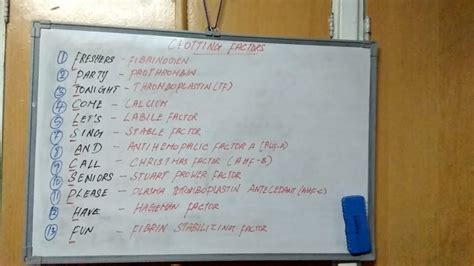 CLOTTING FACTORS
1 FRESHERS - FIBRINOGEN
2 PARTY - PROTHROMBIN
3 TONIGHT - THROMBOPLASTIN (TF)
4 COME - CALCIUM
5 LET'S - LABILE FACTOR
7 SING - STABLE FACTOR
8 AND - ANTIHEMOPHILIC FACTOR A
9 CALL - CHRISTMAS FACTOR (AHF-B)
10 SENIORS - STUART PROWER FACTOR
11 PLEASE - PLASMA THROMBOPLASTIN ANTECEDANT (AHF-C)
12 HAVE - HAGEMAN FACTOR
13 FUN - FIBRIN STABILIZING FACTOR